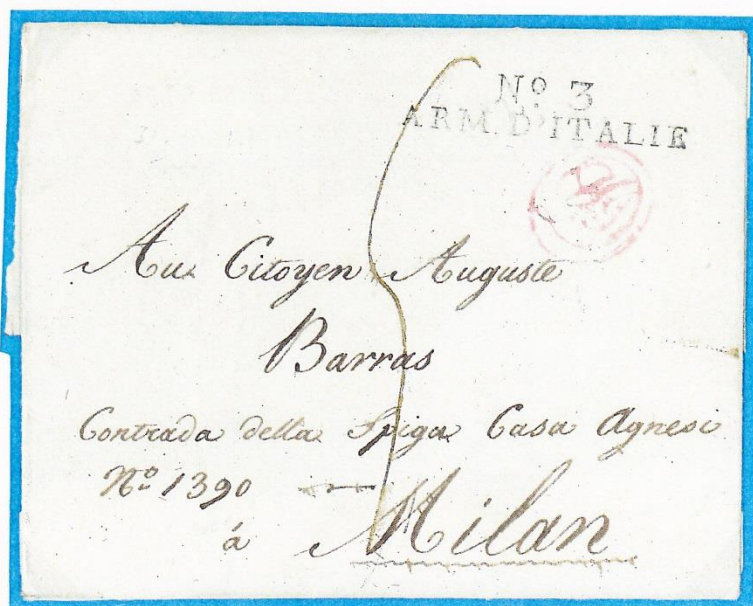 Nº 3
ARM. D'ITALIE
Au Citoyen Auguste
Barras
Contrada della Spiga Casa Agnesi
Nº 1390
á Milan